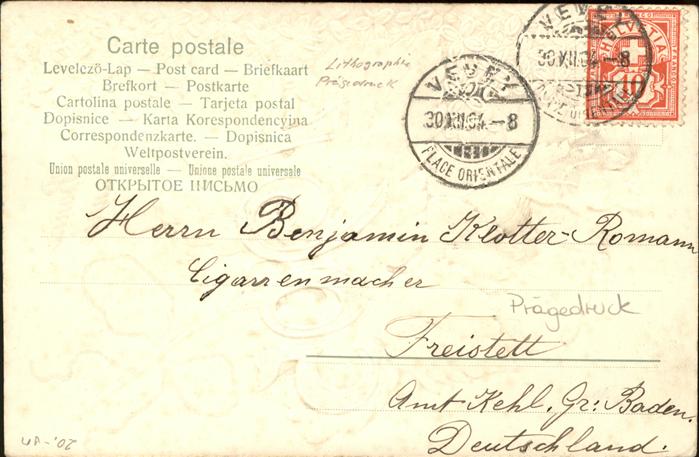 Carte postale
Levelező-Lap — Post card — Briefkaart
Brefkort — Postkarte
Cartolina postale — Tarjeta postal
Dopisnice — Karta Korespondencyjna
Correspondenzkarte. — Dopisnica
Weltpostverein.
Union postale universelle — Unione postale universale
ОТКРЫТОЕ ПИСЬМО
Lithographie
Prägedruck
VEVEY
30.XII.04.–8
PLACE ORIENTALE
VEVEY
30.XII.04.–8
HELVETIA
10
Herrn Benjamin Klotter-Romann
Cigarrenmacher
Prägedruck
Freistett
Amt Kehl. Gr: Baden.
Deutschland.